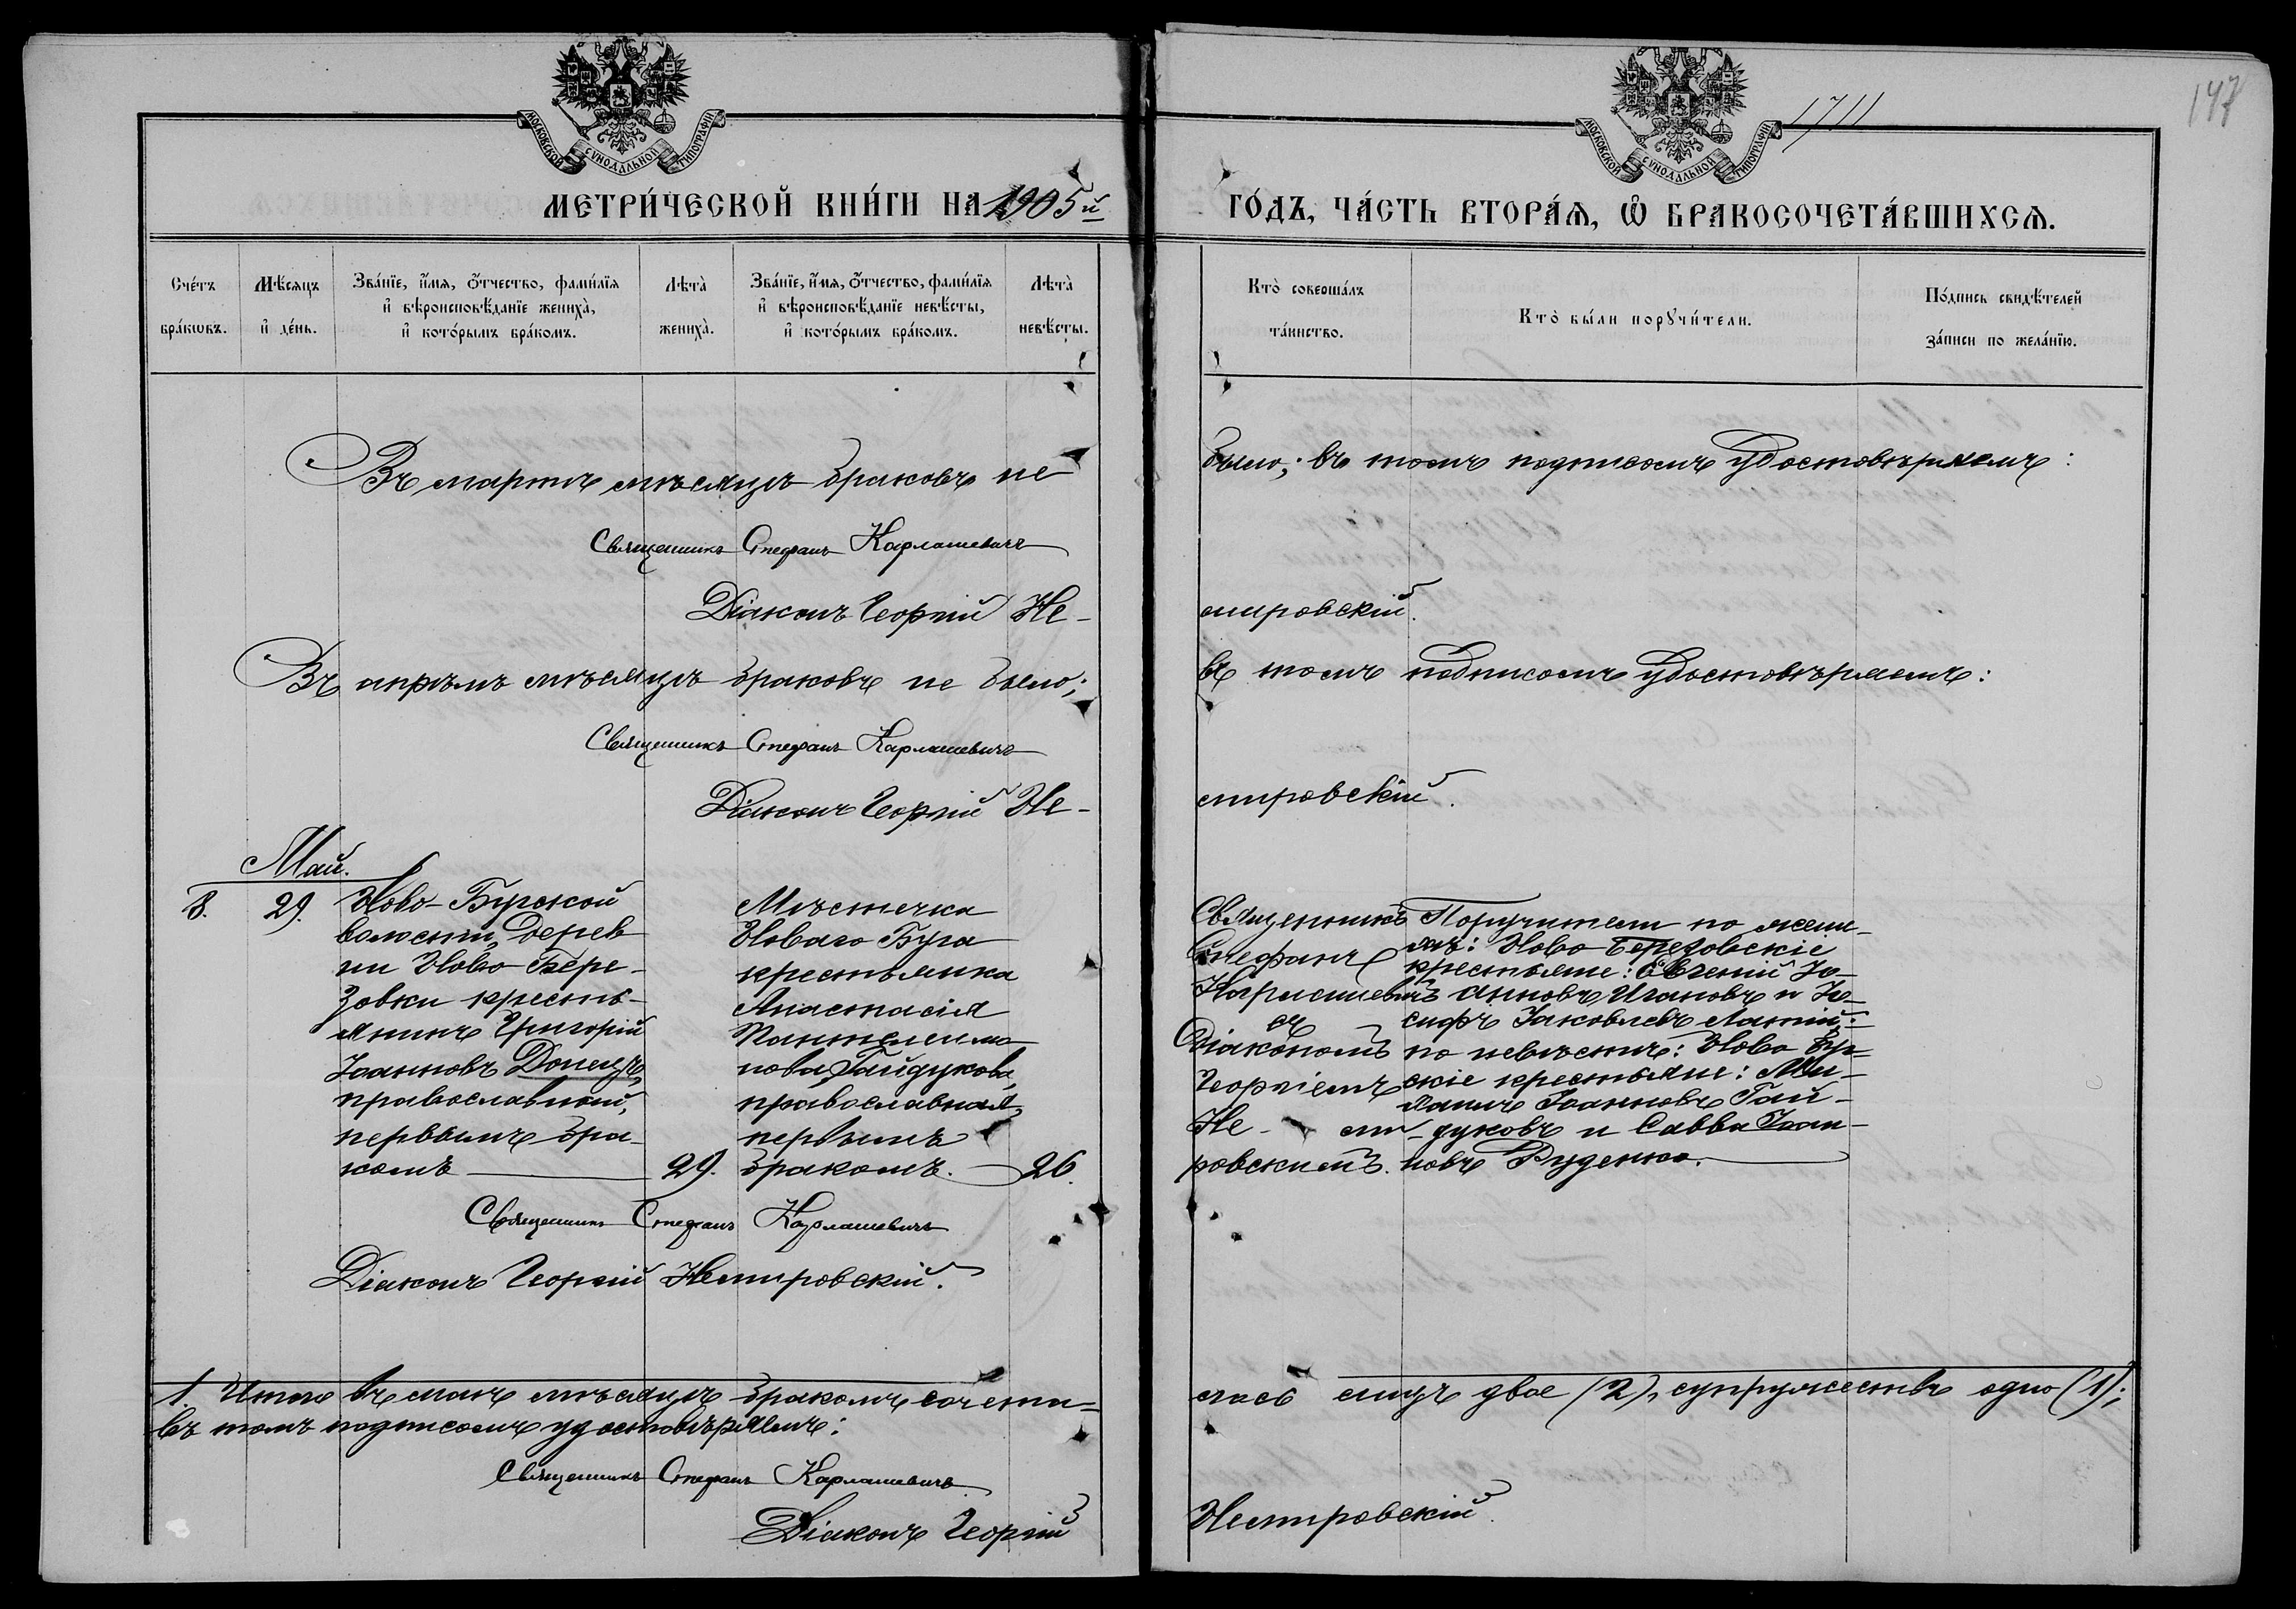 147
1711
МОСКОВСКОЙ СѴНОДАЛЬНОЙ ТИПОГРАФІИ
МОСКОВСКОЙ СѴНОДАЛЬНОЙ ТИПОГРАФІИ
МЕТРИ́ЧЕСКОЙ КНИ́ГИ НА 1905й
ГО́ДЪ, ЧА́СТЬ ВТОРА́Ѧ, Ѽ БРАКОСОЧЕТА́ВШИХСѦ.
Сче́тъ
бра́кѡвъ.
Мѣ́сяцъ
и҆ де́нь.
Зва́нїе, и҆́мя, ѻ҆́тчество, фами́лїя
и҆ вѣроисповѣ́данїе жениха̀,
и҆ кото́рымъ бра́комъ.
Лѣта̀
жениха̀.
Зва́нїе, и҆́мя, ѻ҆́тчество, фами́лїя
и҆ вѣроисповѣ́данїе невѣ́сты,
и҆ кото́рымъ бра́комъ.
Лѣта̀
невѣ́сты.
Кто̀ соверша́лъ
та́инство.
Кто̀ бы́ли порꙋчи́тели.
По́дпись свидѣ́телей
за́писи по жела́нїю.
Въ мартѣ мѣсяцѣ браковъ не
было; въ томъ подписомъ удостовѣряемъ:
Священникъ Стефанъ Карлашевичъ
Діаконъ Георгій Не-
мировскій.
Въ апрѣлѣ мѣсяцѣ браковъ не было;
въ томъ подписомъ удостовѣряемъ:
Священникъ Стефанъ Карлашевичъ
Діаконъ Георгій Не-
мировскій.
Май.
8.
29.
Ново-Бугской
волости, дерев
ни Ново-Бере-
зовки кресть-
янинъ Григорій
Іоанновъ Донецъ,
православный,
первымъ бра-
комъ
29.
Мѣстечка
Новаго Буга
крестьянка
Анастасія
Пантелеимо
нова Гайдукова,
православная,
первымъ
бракомъ.
26.
Священникъ
Стефанъ
Карлашевичъ
съ
Діакономъ
Георгіемъ
Не- ми-
ровскимъ.
Поручители по жени-
хѣ: Ново Березовскіе
крестьяне: Евгеній Іо-
анновъ Игановъ и Іо-
сифъ Іаковлевъ Латій;
по невѣстѣ: Ново Буг-
скіе крестьяне: Ми-
Іоанновъ Гай-
дуковъ и Савва Іоан-
новъ Руденко.
Священникъ Стефанъ Карлашевичъ
Діаконъ Георгій Немировскій.
1. Итого въ маѣ мѣсяцѣ бракомъ сочета-
лось лицъ двое (2), супружествъ одно (1);
въ томъ подписомъ удостовѣряемъ:
Священникъ Стефанъ Карлашевичъ
Діаконъ Георгій
Немировскій.